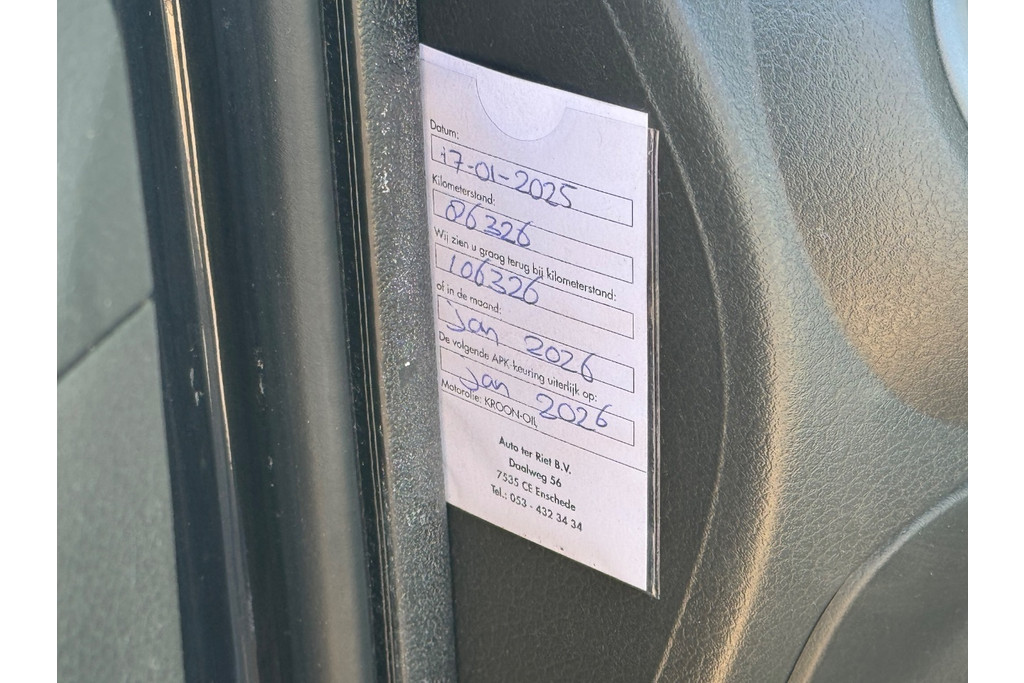 Datum:
17-01-2025
Kilometerstand:
86326
Wij zien u graag terug bij kilometerstand:
106326
of in de maand:
jan 2026
De volgende APK-keuring uiterlijk op:
jan 2026
Motorolie: KROON-OIL
Auto ter Riet B.V.
Daalweg 56
7535 CE Enschede
Tel.: 053 - 432 34 34